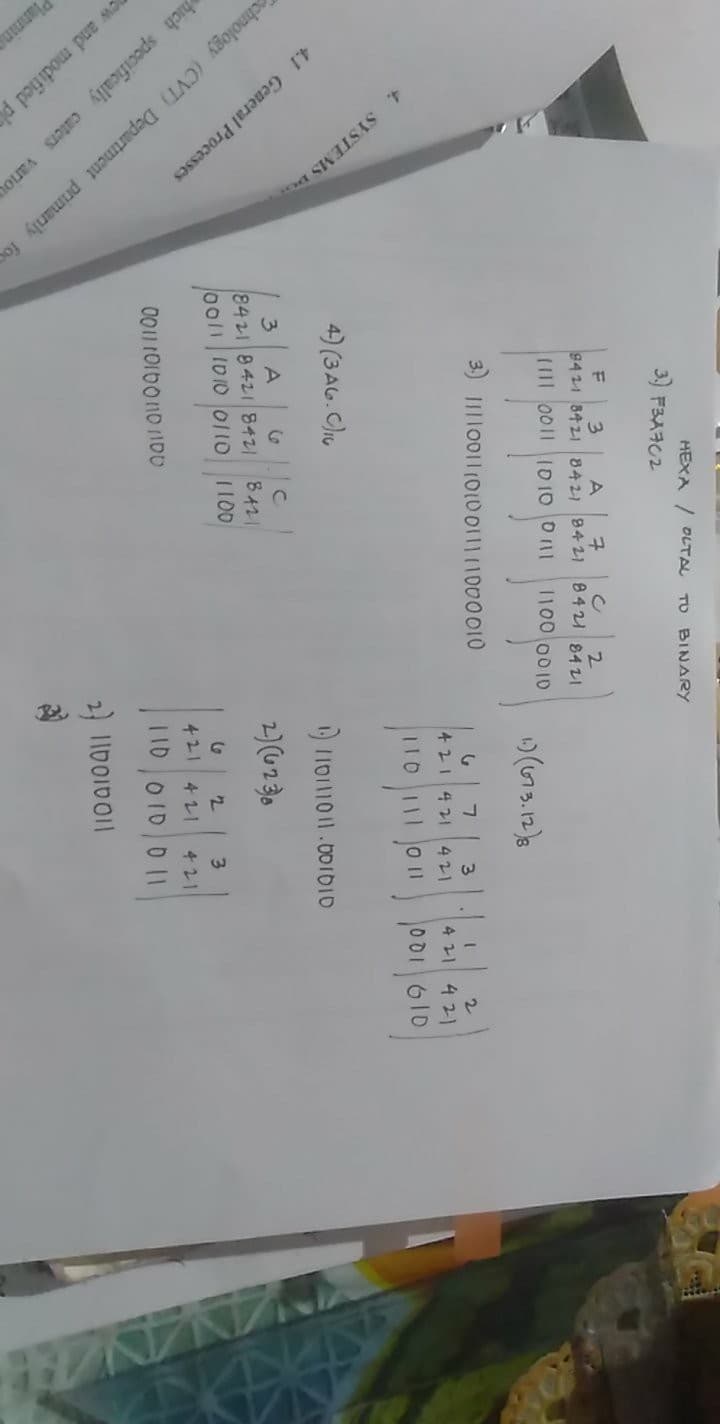 HEXA / OCTAL TO BINARY
3.) F3A7C2
F 3 A 7 C 2
8421 8421 8421 8421 8421 8421
1111 0011 1010 0111 1100 0010
3.) 111100111010011111000010
1.) (673.12)8
6 7 3 . 1 2
421 421 421 421 421
110 111 011 001 010
1.) 110111011.001010
4.) (3A6.C)16
3 A 6 . C
8421 8421 8421 8421
0011 1010 0110 1100
0011101001101100
2.) (623)8
6 2 3
421 421 421
110 010 011
2.) 110010011
4. SYSTEMS
4.1 General Processes
(CVT) Department primarily
specifically caters
and modified